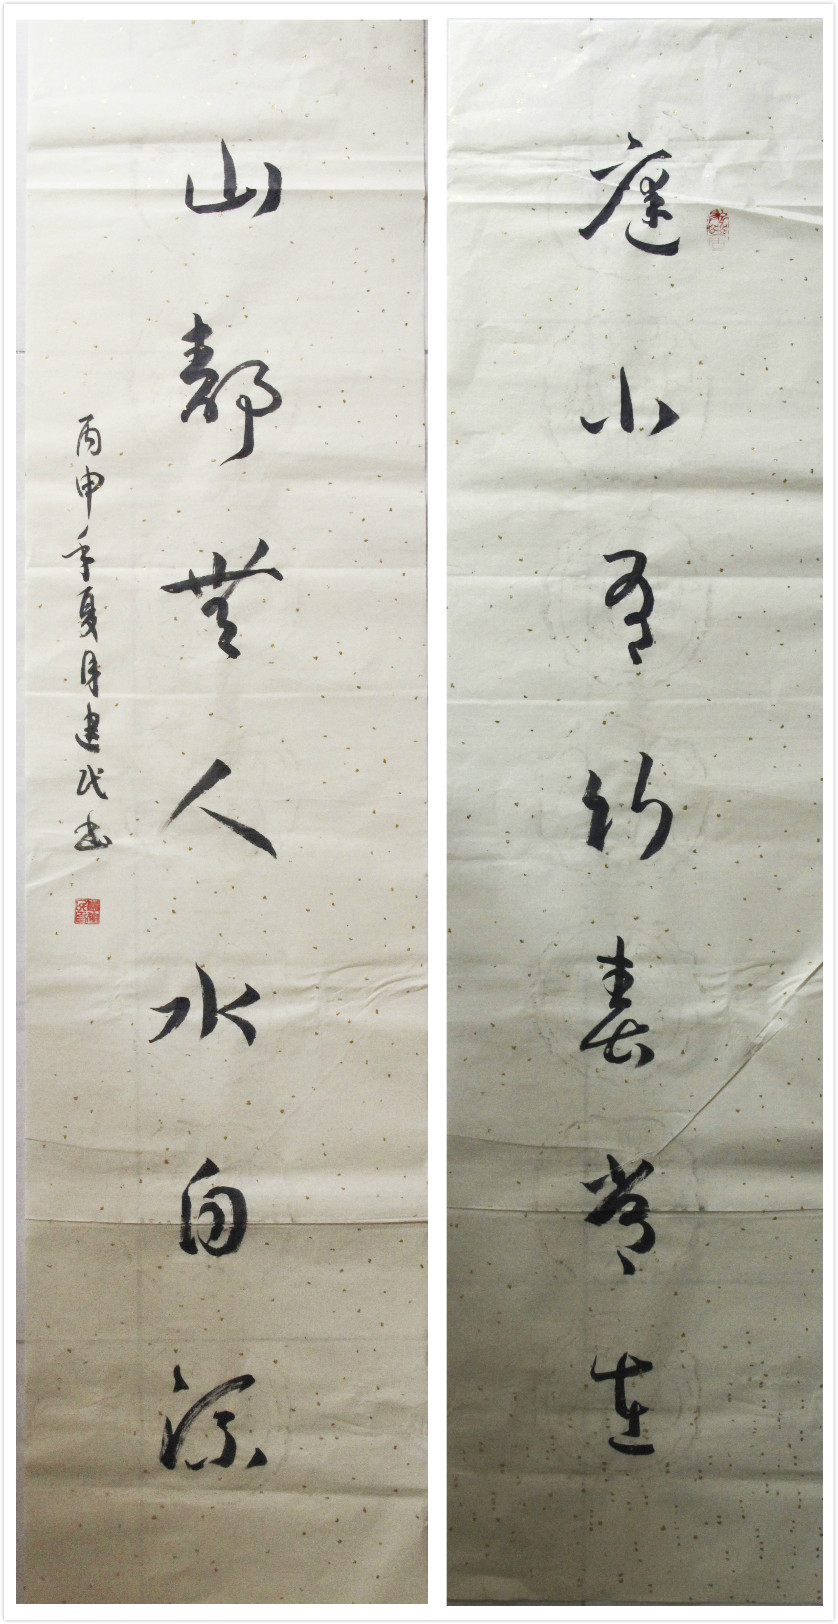 庭小有竹春常在
山静無人水自流
丙申年夏月建民书